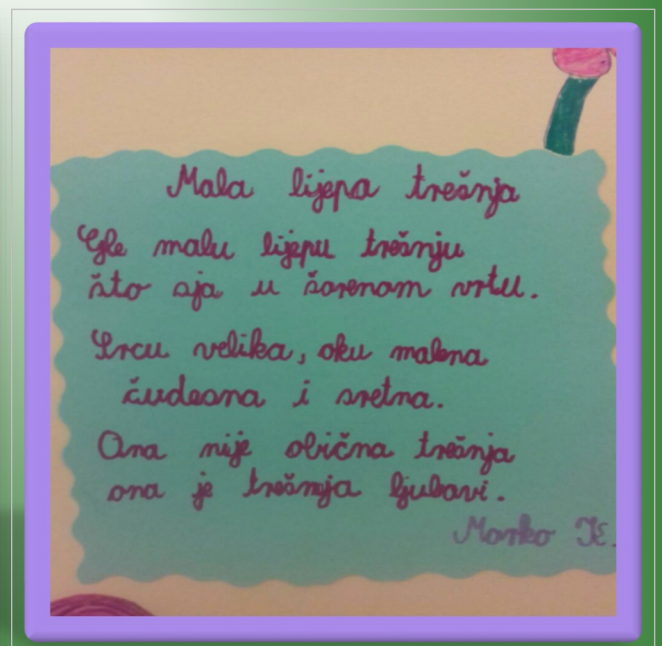 Mala lijepa trešnja
Gle malu lijepu trešnju
što sja u šarenom vrtu.
Srcu velika, oku malena
čudesna i sretna.
Ona nije obična trešnja
ona je trešnja ljubavi.
Marko K.